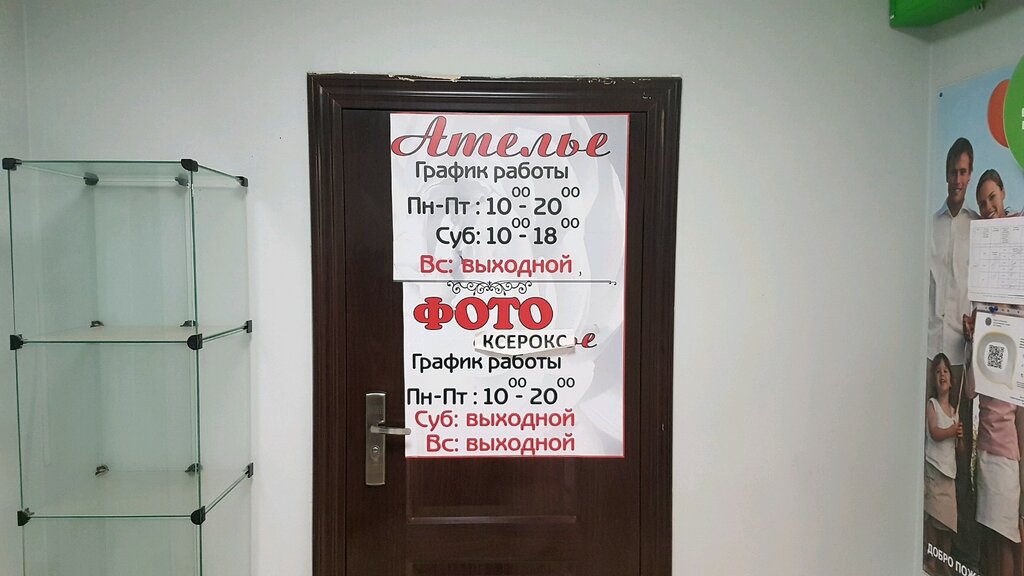 Ателье
График работы
Пн-Пт : 10⁰⁰- 20⁰⁰
Суб: 10⁰⁰- 18⁰⁰
Вс: выходной
ФОТО
КСЕРОКС
График работы
Пн-Пт : 10⁰⁰- 20⁰⁰
Суб: выходной
Вс: выходной
ДОБРО